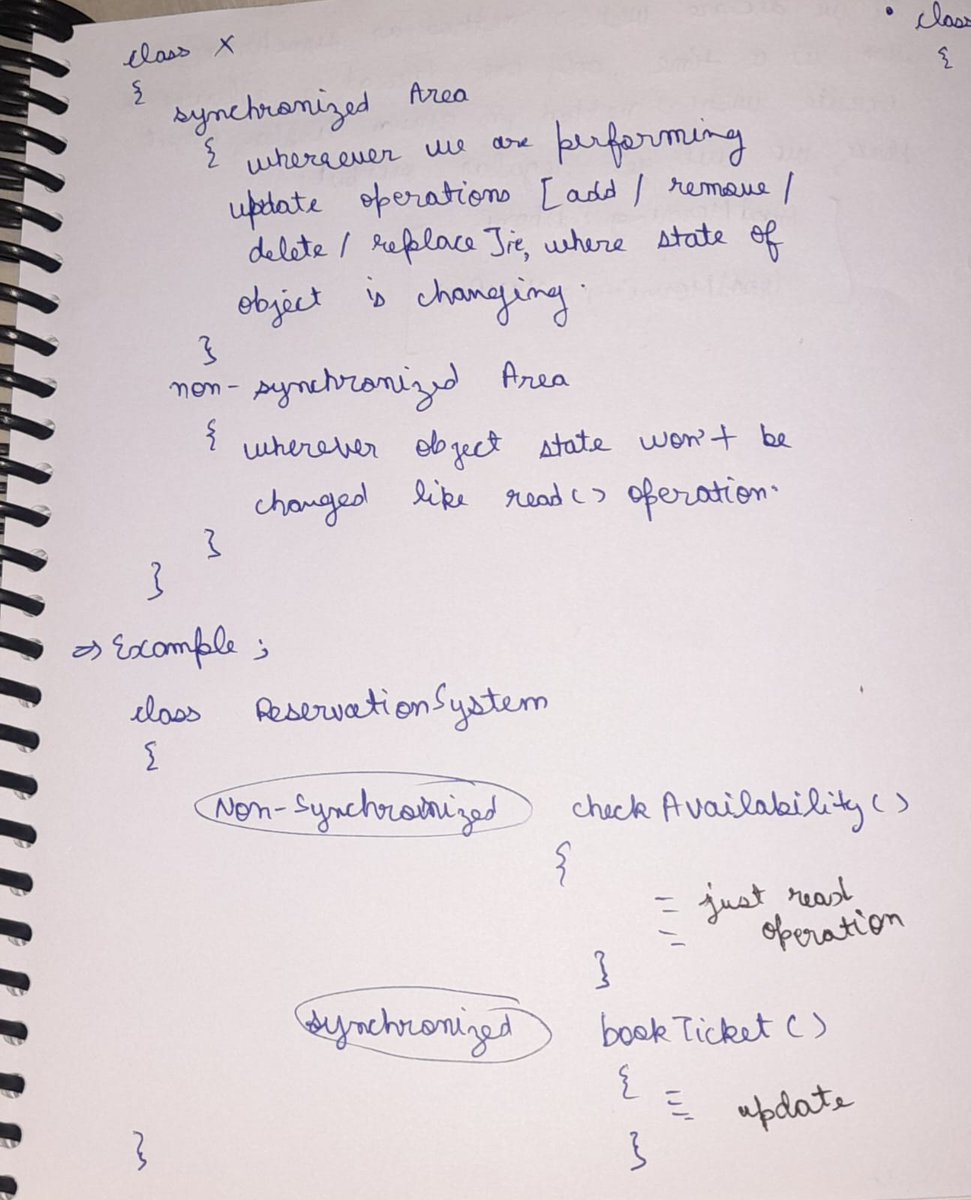 class X
{
synchronized Area
{ wherever we are performing
update operations [add / remove /
delete / replace] ie, where state of
object is changing.
}
non-synchronized Area
{ wherever object state won't be
changed like read() operation.
}
}
⇒ Example ;
class ReservationSystem
{
Non-Synchronized checkAvailability()
{
≡ just read
operation
}
synchronized bookTicket()
{
≡ update
}
}
• class
{